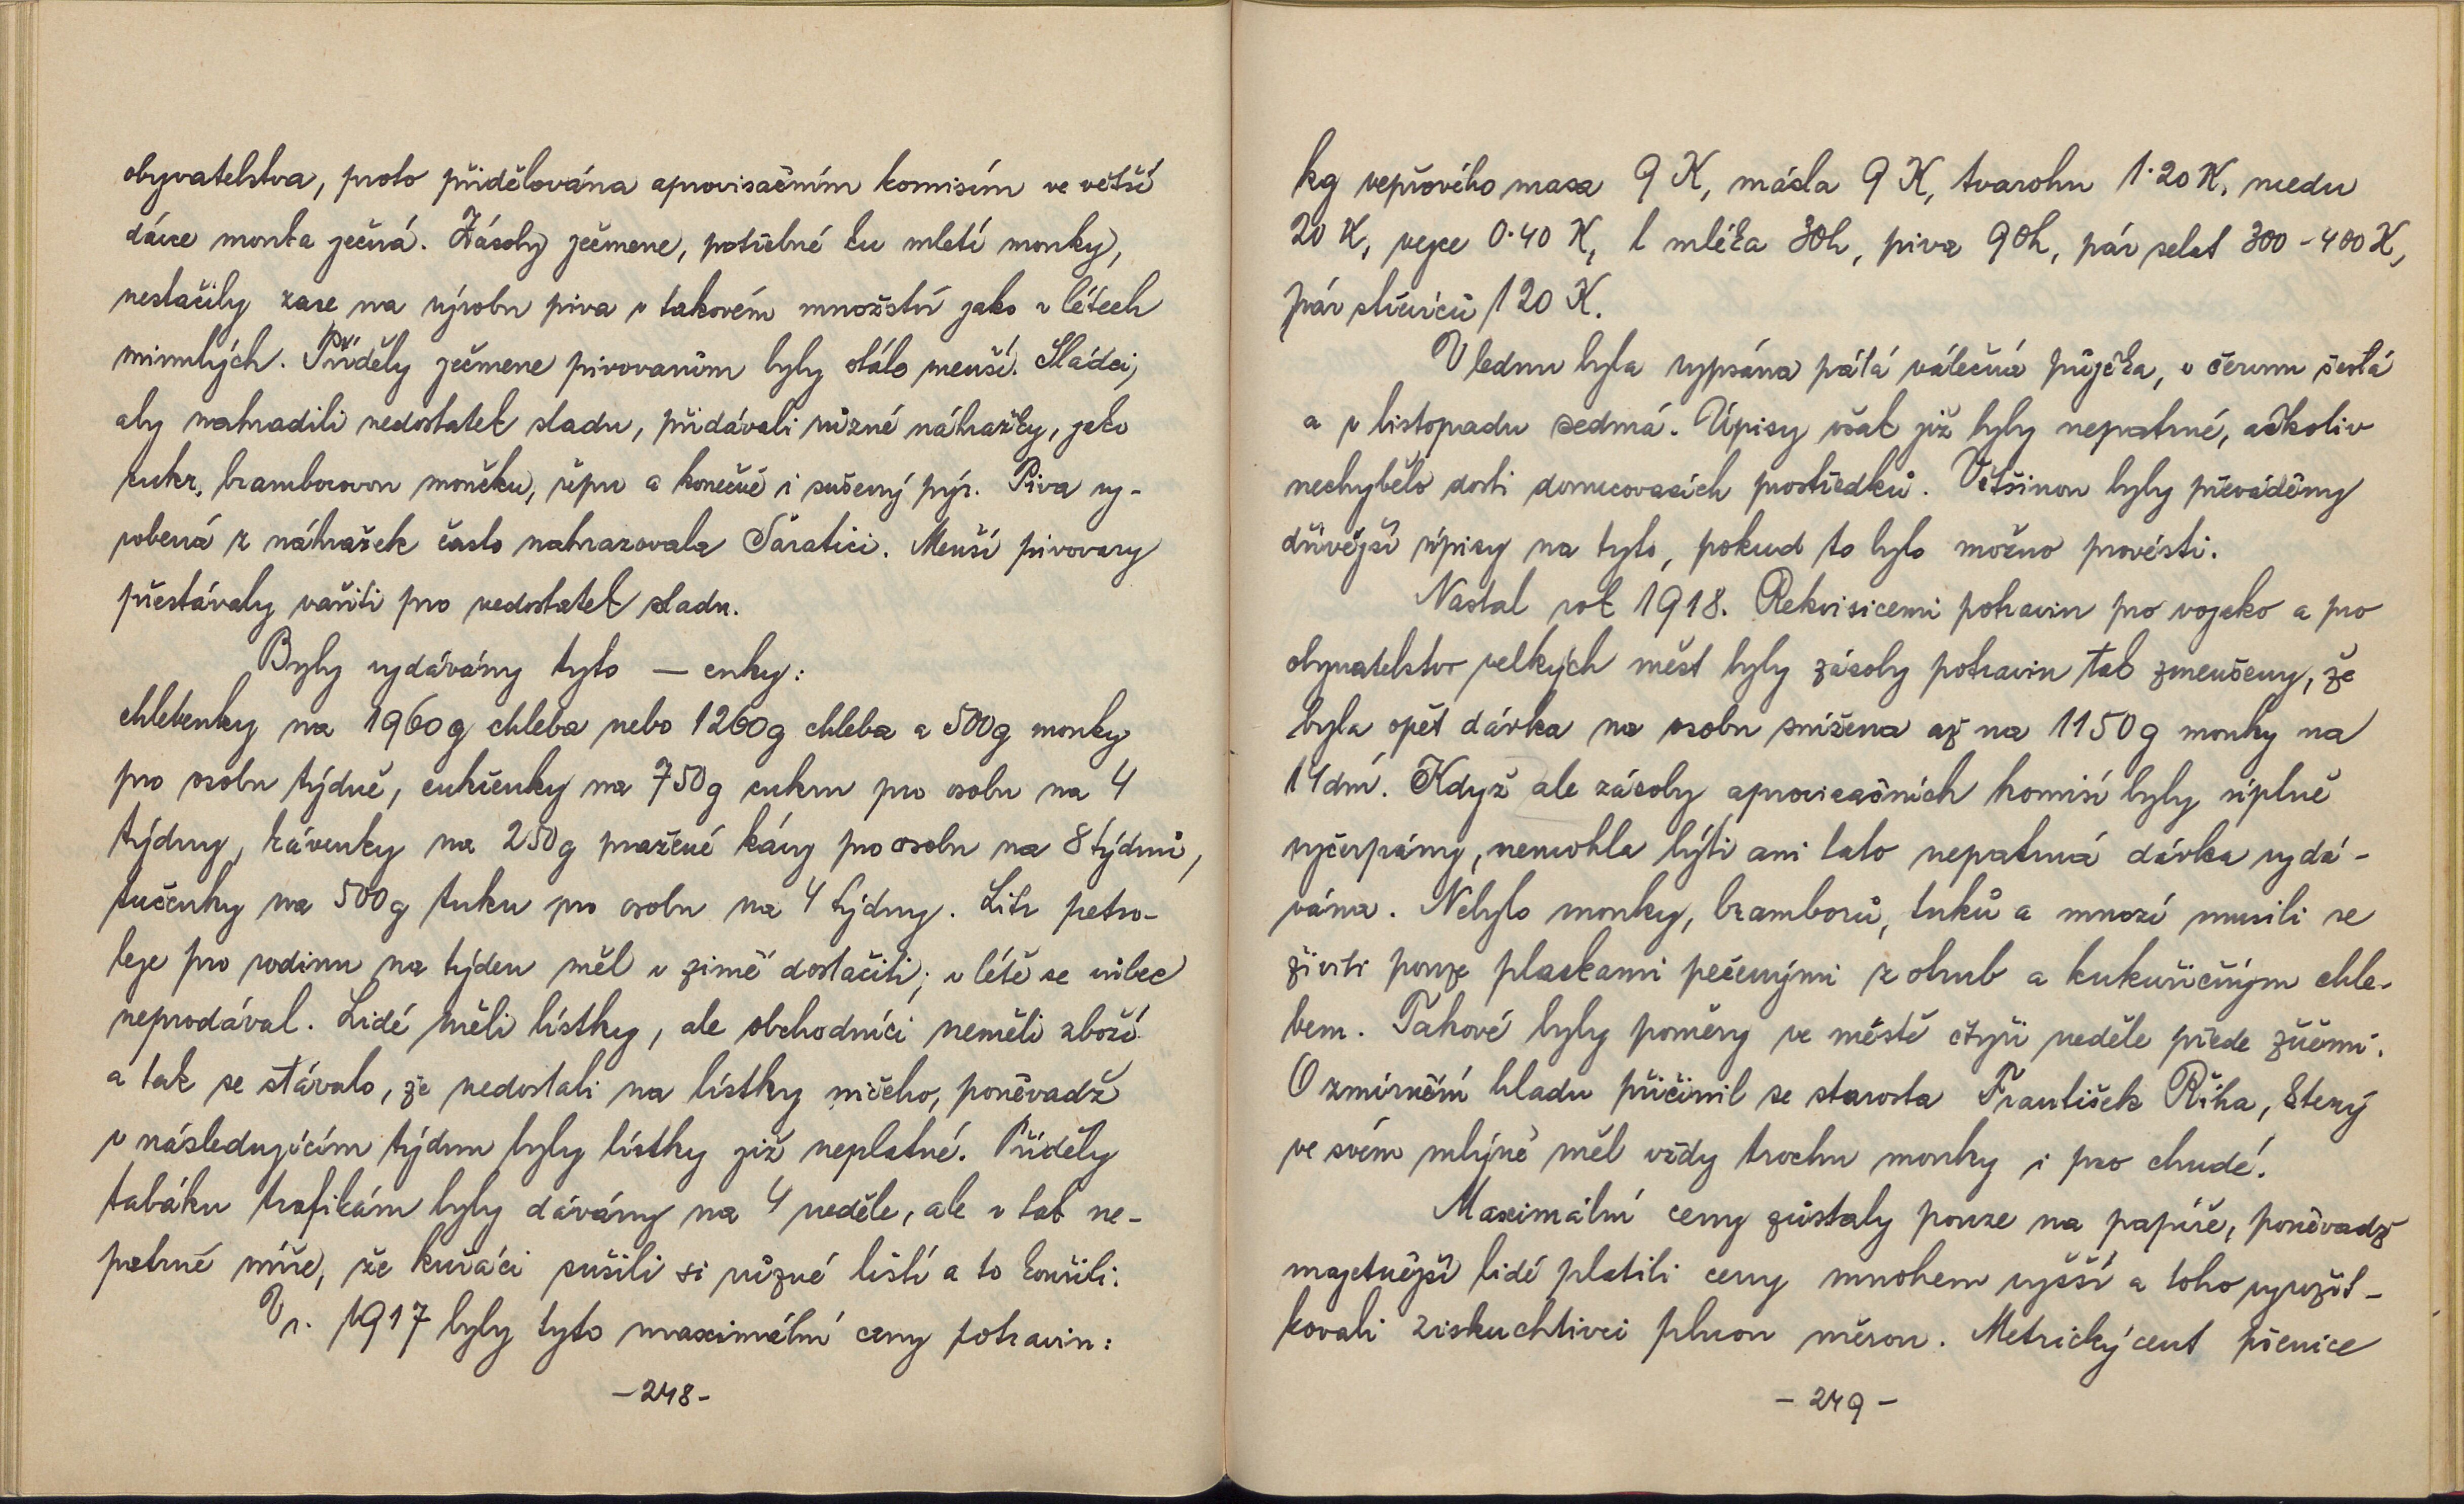 obyvatelstva, proto přidělována aprovisačním komisím ve větší
dávce mouka ječná. Zásoby ječmene, potřebné ku mletí mouky,
nestačily zase na výrobu piva v takovém množství jako v létech
minulých. Příděly ječmene pivovarům byly stále menší. Sládci,
aby nahradili nedostatek sladu, přidávali různé náhražky, jako
cukr, bramborovou moučku, řepu a konečně i sušený pýr. Piva vy-
robená z náhražek často nahrazovala Šaratici. Menší pivovary
přestávaly vařiti pro nedostatek sladu.
Byly vydávány tyto — enky:
chlebenky na 1960g chleba nebo 1260g chleba a 500g mouky
pro osobu týdně, cukřenky na 750g cukru pro osobu na 4
týdny, kávenky na 250g pražené kávy pro osobu na 8 týdnů,
tučenky na 500g tuku pro osobu na 4 týdny. Litr petro-
leje pro rodinu na týden měl v zimě dostačiti; v létě se vůbec
neprodával. Lidé měli lístky, ale obchodníci neměli zboží
a tak se stávalo, že nedostali na lístky ničeho, poněvadž
v následujícím týdnu byly lístky již neplatné. Příděly
tabáku trafikám byly dávány na 4 neděle, ale v tak ne-
patrné míře, že kuřáci sušili si různé listí a to kouřili.
V r. 1917 byly tyto maximální ceny potravin:
-248-
kg vepřového masa 9 K, másla 9 K, tvarohu 1·20 K, medu
20 K, vejce 0·40 K, l mléka 30h, piva 90h, pár selat 300-400 K,
pár střevíců 120 K.
V lednu byla vypsána pátá válečná půjčka, v červnu šestá
a v listopadu sedmá. Úpisy však již byly nepatrné, ačkoliv
nechybělo dosti donucovacích prostředků. Většinou byly převáděny
dřívější úpisy na tyto, pokud to bylo možno provésti.
Nastal rok 1918. Rekvisicemi potravin pro vojsko a pro
obyvatelstvo velkých měst byly zásoby potravin tak zmenšeny, že
byla opět dávka na osobu snížena až na 1150g mouky na
14 dní. Když ale zásoby aprovisačních komisí byly úplně
vyčerpány, nemohla býti ani tato nepatrná dávka vydá-
vána. Nebylo mouky, bramborů, tuků a mnozí musili se
živiti pouze plackami pečenými z otrub a kukuřičným chle-
bem. Takové byly poměry ve městě čtyři neděle přede žněmi.
O zmírnění hladu přičinil se starosta František Říha, který
ve svém mlýně měl vždy trochu mouky i pro chudé.
Maximální ceny zůstaly pouze na papíře, poněvadž
majetnější lidé platili ceny mnohem vyšší a toho využit-
kovali ziskuchtivci plnou měrou. Metrický cent pšenice
- 249 -